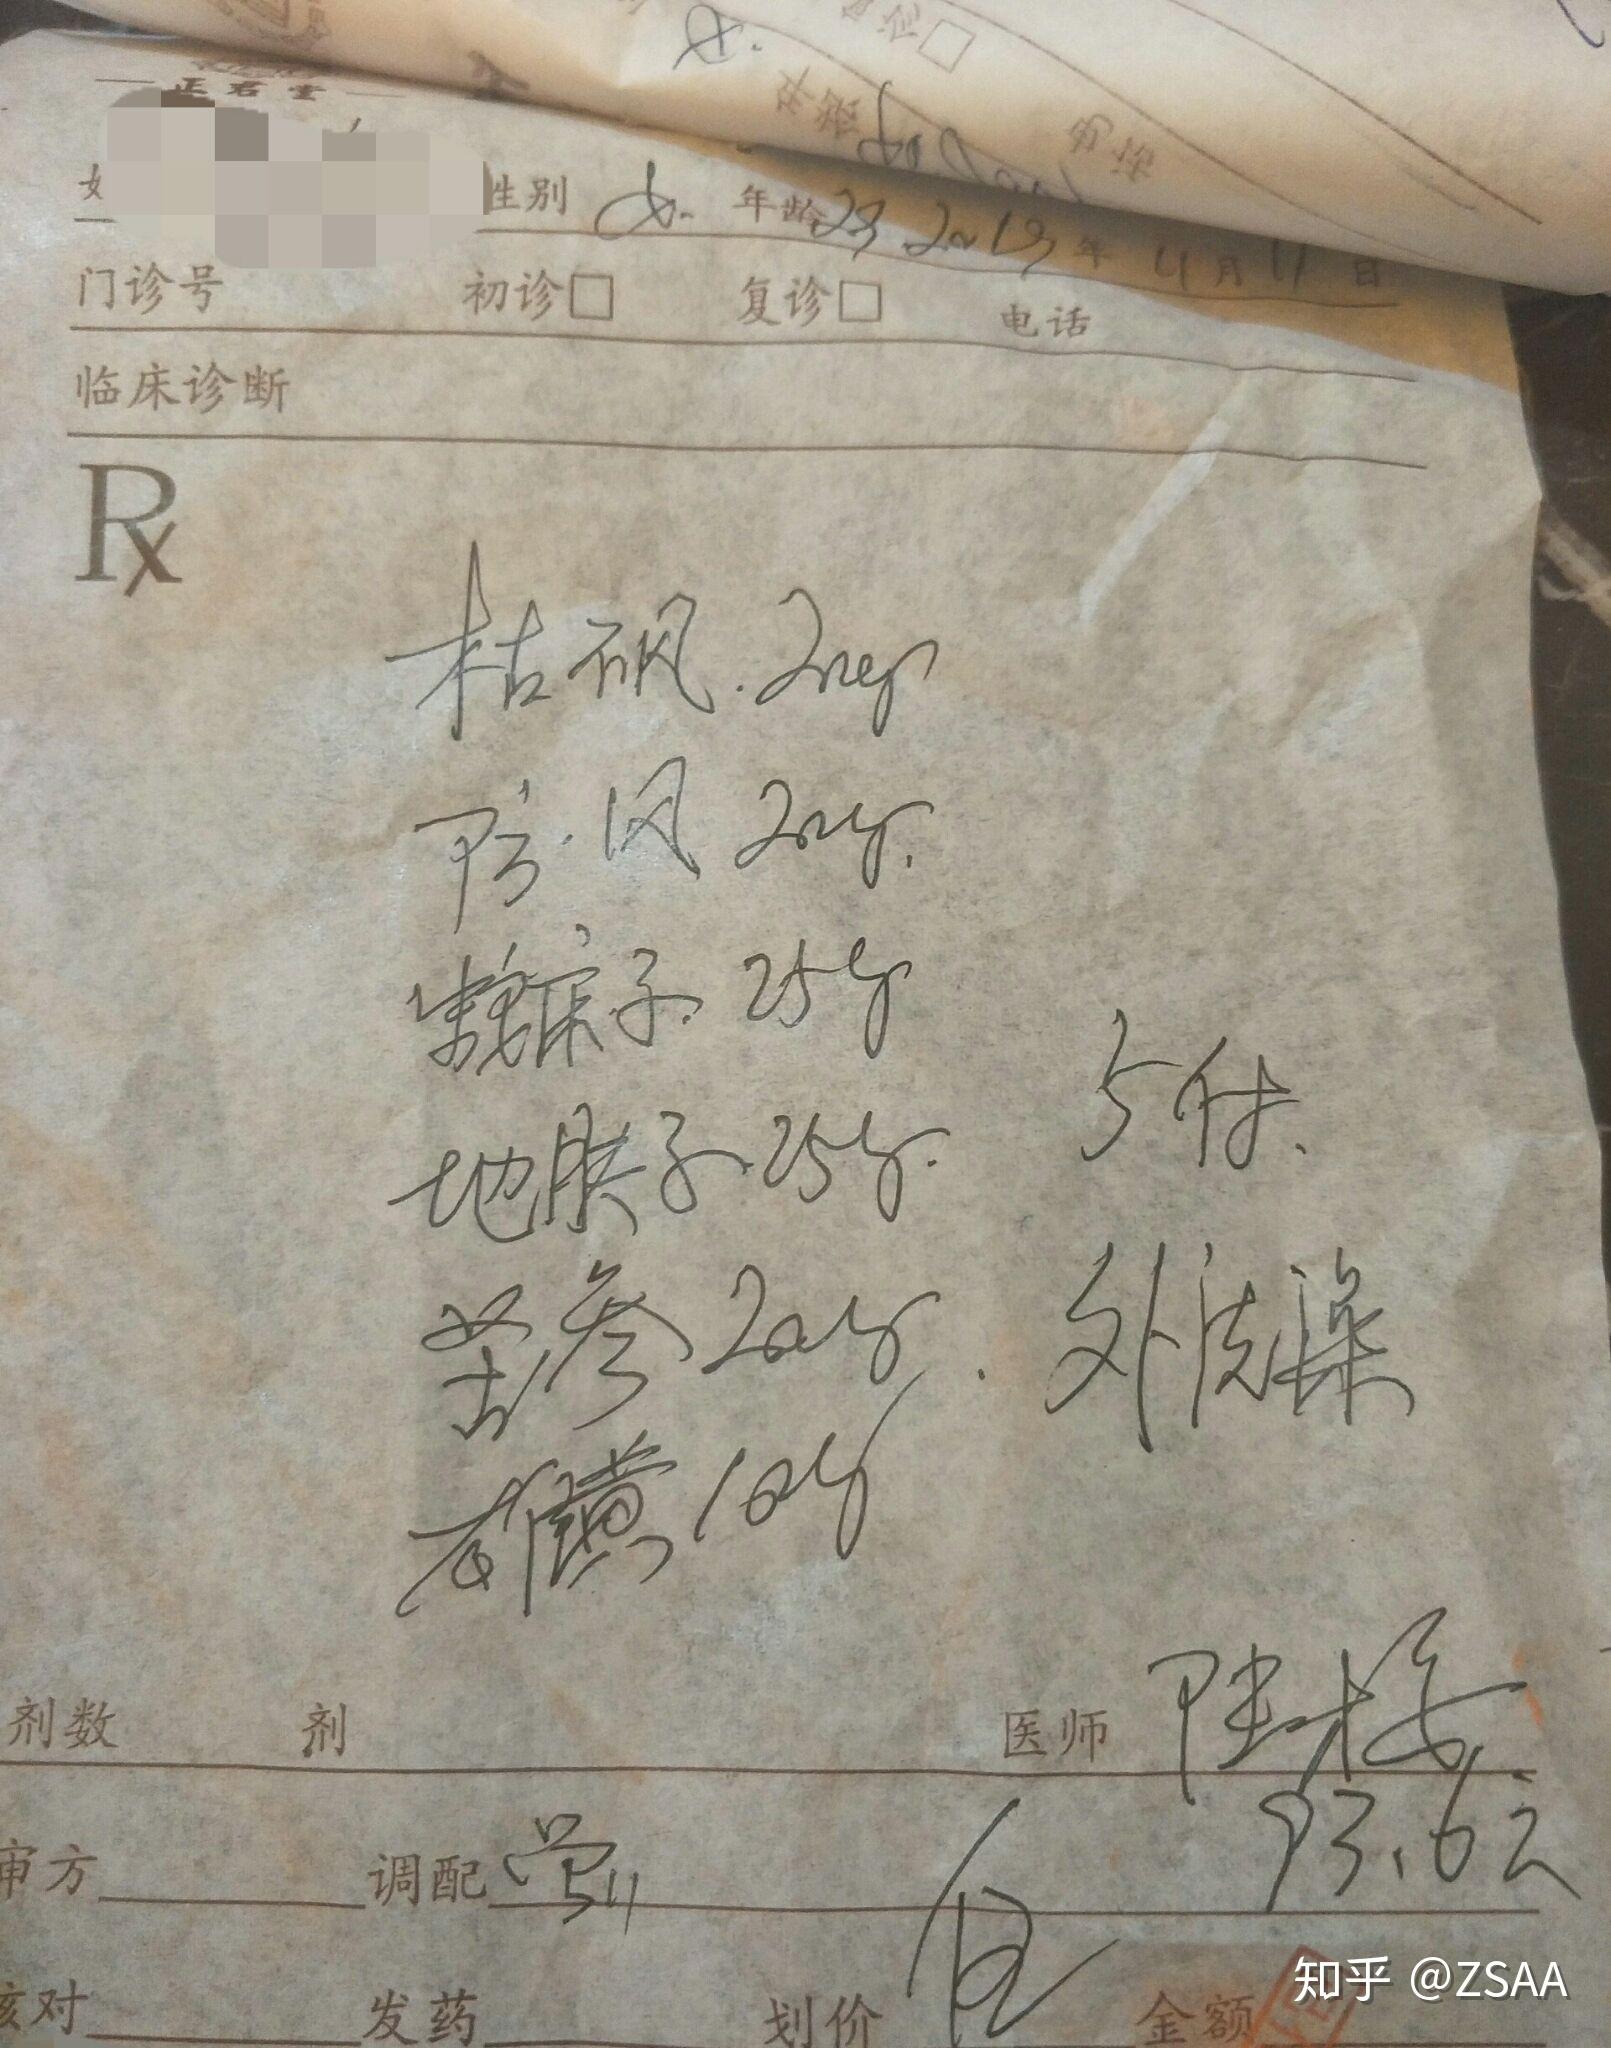 正君堂
性别 女 年龄 23 2019年 4月11日
门诊号 初诊□ 复诊□ 电话
临床诊断
Rx
枯矾 20g
防风 20g
蛇床子 25g
地肤子 25g 5付
苦参 20g 外洗澡
雄黄 10g
剂数 剂 医师
93.6元
审方 调配
核对 发药 划价 金额
知乎 @ZSAA